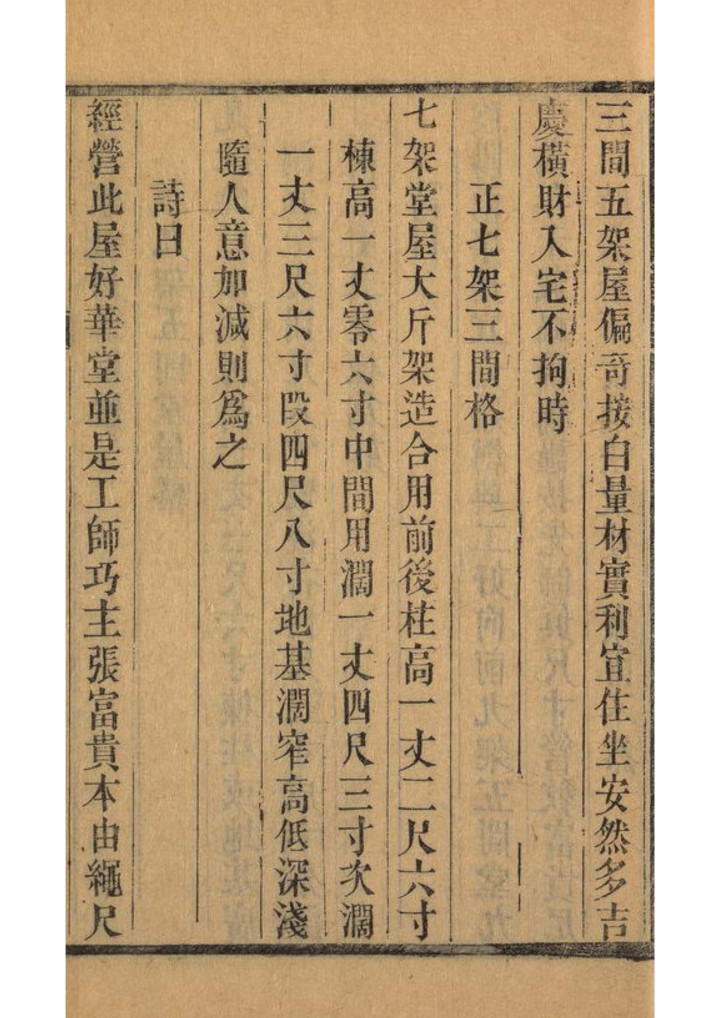 三間五架屋偏奇按白量材實利宜住坐安然多吉
慶橫財入宅不拘時
正七架三間格
七架堂屋大斤架造合用前後柱高一丈二尺六寸
棟高一丈零六寸中間用濶一丈四尺三寸次濶
一丈三尺六寸段四尺八寸地基濶窄高低深淺
隨人意加減則爲之
詩曰
經營此屋好華堂並是工師巧主張富貴本由繩尺